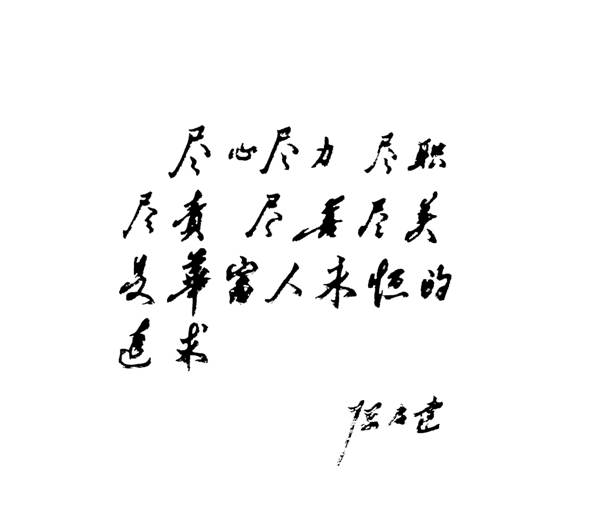 尽心尽力 尽职
尽责 尽善尽美
是華富人永恒的
追求